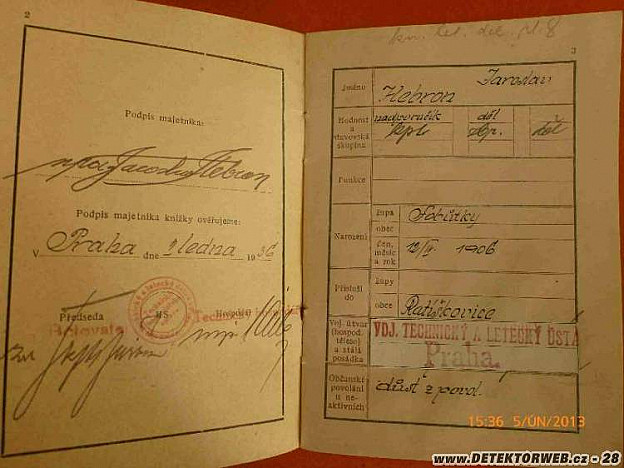 2
Podpis majetníka:
npor. Jaroslav Hebron
Podpis majetníka knížky ověřujeme:
V Praha dne ledna 1936
Předseda MS Hospodář
kn. let. děl. pl. 8
3
Jméno
Jaroslav
Hebron
Hodnost a služební skupina
nadporučík děl
kpt. děl
Funkce
Narození
župa
obec
Sobůlky
den, měsíc a rok
12/IV 1906
Přísluší do
župy
obce
Ratíškovice
Voj. útvar (hospod. těleso) a stálá posádka
VOJ. TECHNICKÝ A LETECKÝ ÚSTA
Praha.
Občanské povolání u neaktivních
důst z povol.
15:36 5/ÚN/2013
www.DETEKTORWEB.cz - 28